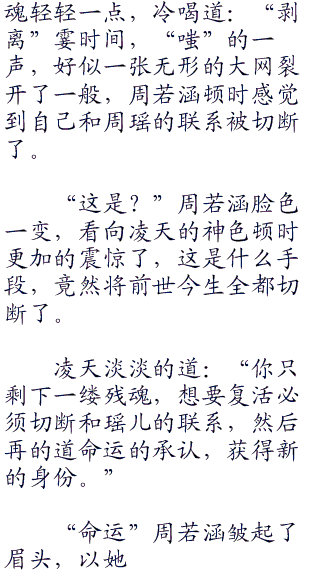 魂轻轻一点，冷喝道：“剥
离”霎时间，“嗤”的一
声，好似一张无形的大网裂
开了一般，周若涵顿时感觉
到自己和周瑶的联系被切断
了。
“这是？”周若涵脸色
一变，看向凌天的神色顿时
更加的震惊了，这是什么手
段，竟然将前世今生全都切
断了。
凌天淡淡的道：“你只
剩下一缕残魂，想要复活必
须切断和瑶儿的联系，然后
再的道命运的承认，获得新
的身份。”
“命运”周若涵皱起了
眉头，以她